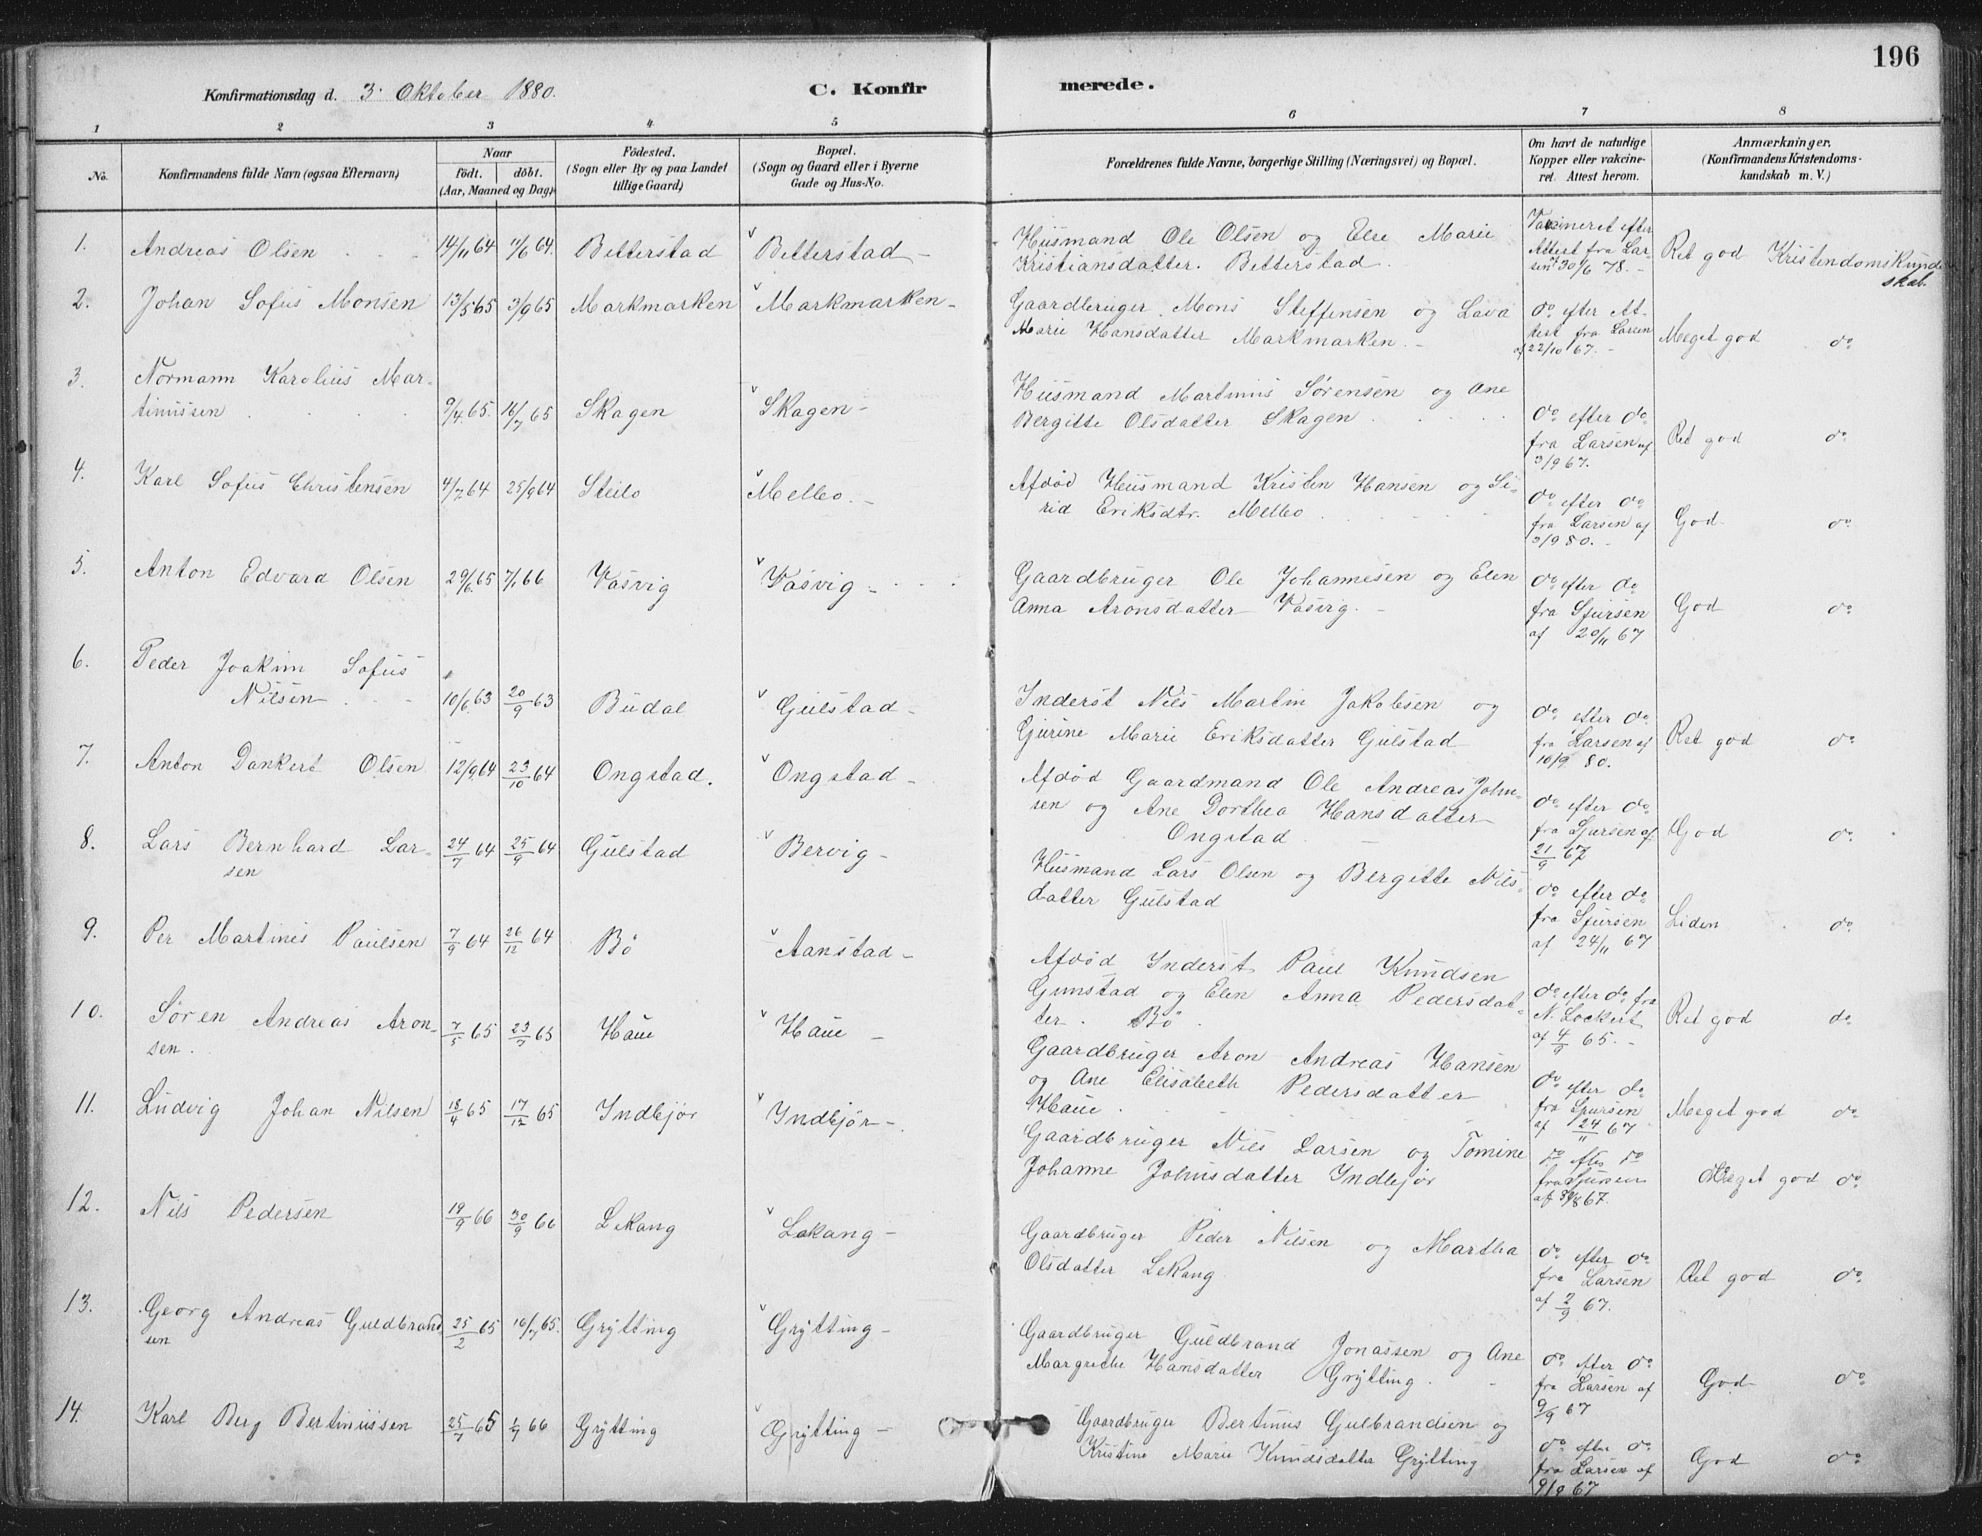 196
Konfirmationsdag d. 3. Oktober 1880.
C. Konfirmerede.
1 2 3 4 5 6 7 8
No.
Konfirmandens fulde Navn (ogsaa Efternavn)
Naar
födt. döbt.
(Aar, Maaned og Dag)
Födested.
(Sogn eller By og paa Landet
tillige Gaard)
Bopæl.
(Sogn og Gaard eller i Byerne
Gade og Hus-No.
Forældrenes fulde Navne, borgerlige Stilling (Næringsvei) og Bopæl.
Om havt de naturlige
Kopper eller vakcine-
ret. Attest herom.
Anmærkninger,
(Konfirmandens Kristendoms-
kundskab m. V.)
1. Andreas Olsen 14/11 64 Bitterstad Bitterstad
Husmand Ole Olsen og Else Marie
Kristiansdatter. Bitterstad.
Vaksineret efter
Attest fra Lar-
sen 30/6 78.
Ret god Kristendomskund-
skab.
2. Johan Sofus Monsen 13/5 65 3/9 65 Markmarken Markmarken
Gaardbruger Mons Steffensen og Lava
Marie Hansdatter Markmarken.
do efter At-
test fra Larsen
af 22/10 67.
Meget god do
3. Normann Karolius Mar-
tinussen 9/4 65. 16/7 65 Skagen Skagen
Husmand Martinus Sørensen og Ane
Bergitte Olsdatter Skagen
do efter do
fra Larsen af
3/9 67.
Ret god do
4. Karl Sofus Christensen 4/7 64 25/9 64 Steilo Melbo.
Afdød Husmand Kristen Hansen og Si-
rid Eriksdtr. Melbo
do efter do
fra Larsen af
3/9 80.
God do
5. Anton Edvard Olsen 29/6 65 7/1 66 Vasvig Vasvig
Gaardbruger Ole Johannesen og Elen
Anna Aronsdatter Vasvig.
do efter do
fra Sjursen
af 20/11 67
God do
6. Peder Joakim Sofus
Nilsen 10/6 63 20/9 63 Budal Gulstad
Inderst Nils Martin Jakobsen og
Gjurine Marie Eriksdatter Gulstad
do efter do
fra Larsen af
10/9 80.
Ret god do
7. Anton Dankert Olsen 12/9 64 23/10 64 Ongstad. Ongstad
Afdød Gaardmand Ole Andreas John-
sen og Ane Dorthea Hansdatter
Ongstad
do efter do
fra Sjursen af
21/9 67
God do
8. Lars Bernhard Lar-
sen 24/7 64 25/9 64 Gulstad Bervig
Husmand Lars Olsen og Bergitte Nils-
datter Gulstad
do efter do
fra Sjursen
af 24/11 67
Liden do
9. Per Martinus Paulsen 7/9 64 26/12 64 Bö Aanstad
Afdød Inderst Paul Knudsen
Gunstad og Elen Anna Pedersdat-
ter. Bö.
do efter do fra
N. Lockert
af 4/9 65.
Ret god do
10. Sören Andreas Aron-
sen. 7/5 65 23/7 65 Haue Haue
Gaardbruger Aron Andreas Hansen
og Ane Elisabeth Pedersdatter
Haue.
do efter do
fra Sjursen
af 24/11 67
Meget god do
11. Ludvig Johan Nilsen 18/4 65 17/12 65 Indbjör Indbjör
Gaardbruger Nils Larsen og Tomine
Johanne Johnsdatter Indbjör
do efter do
fra Sjursen
Meget god do
12. Nils Pedersen 19/9 66 30/9 66 Lekang Lekang
Gaardbruger Peder Nilsen og Martha
Olsdatter Lekang
do efter do
fra Larsen
af 2/9 67.
Ret god do
13. Georg Andreas Guldbrand
sen 25/2 65 16/7 65. Grytting Grytting
Gaardbruger Guldbrand Jonassen og Ane
Margrethe Hansdatter Grytting.
do efter do
fra Larsen af
9/9 67
God do
14. Karl Berg Bertinussen 25/7 65 1/1 66 Grytting Grytting
Gaardbruger Bertinus Gulbrandsen og
Kristine Marie Knudsdatter Grytting
do efter do
fra Larsen af
9/9 67
God do